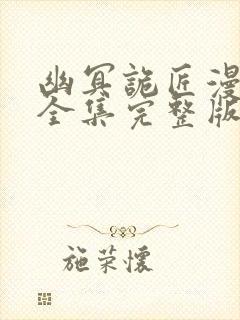 幽冥詭匠漫
全集完整版
施荣懷